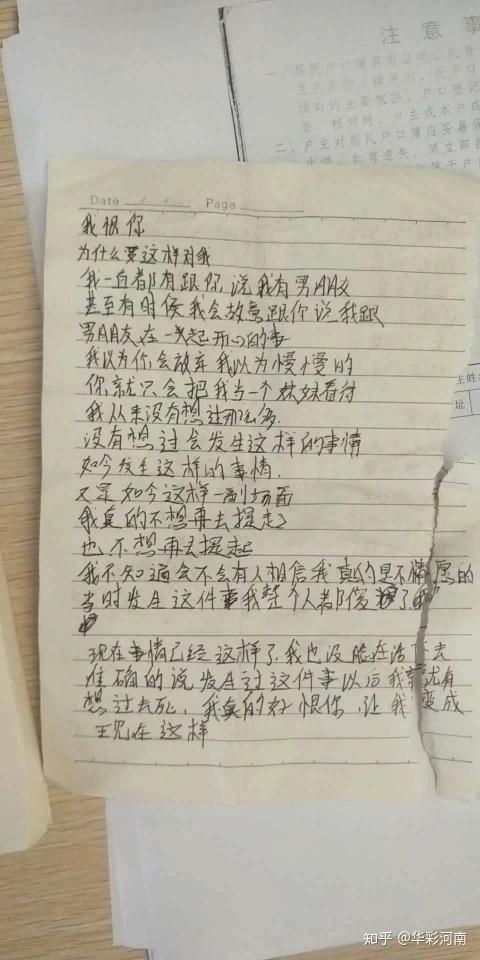 注意事
一、居民户口簿具有证明公民身
二、户主对居民户口簿应妥善保
Date / / Page
我恨你
为什么要这样对我
我一直都有跟你说我有男朋友
甚至有时候我会故意跟你说我跟
男朋友在一起开心的事
我以为你会放弃我以为慢慢的
你就只会把我当一个妹妹看待
我从来没有想过那么多
没有想过会发生这样的事情
如今发生这样的事情.
又是如今这样一副场面
我真的不想再去提起了
也不想再去提起
我不知道会不会有人相信我真的是不情愿的
当时发生这件事我整个人都傻了
现在事情已经这样了我也没脸在活下去
准确的说发生过这件事以后我就有
想过去死,我真的好恨你,让我变成
现在这样
知乎 @华彩河南